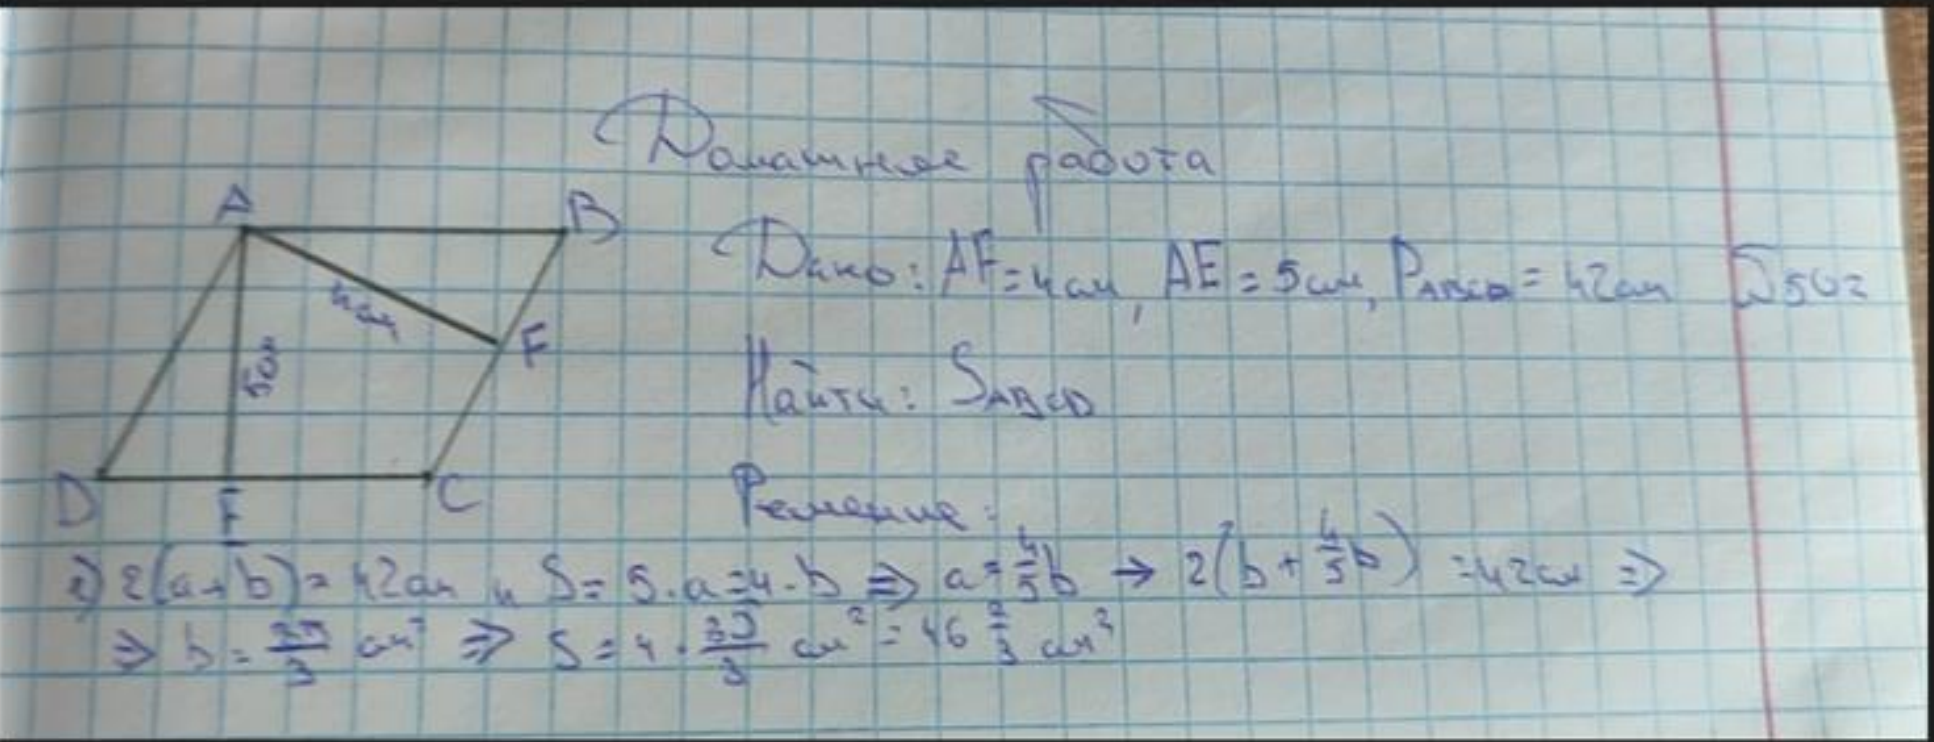 Домашняя работа
A B
Дано: AF=4см, AE=5см, P_ABCD=42см
4см
F
5см
Найти: S_ABCD
D E C
Решение:
1) 2(a+b)=42см и S=5·a=4·b ⇒ a=4/5b → 2(b+4/5b)=42см ⇒
⇒ b=35/3 см² ⇒ S=4·35/3 см²=46 2/3 см²